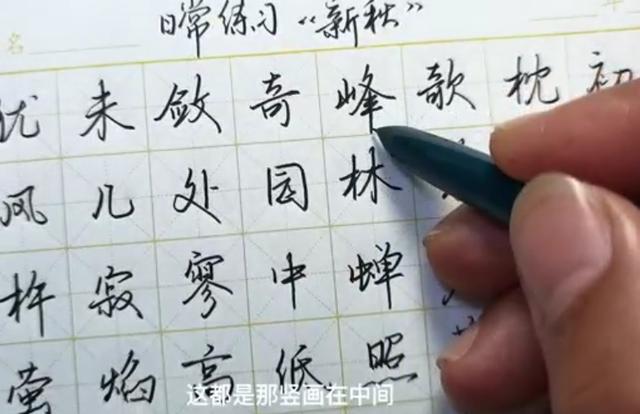 名
日常练习“新秋”
犹未敛奇峰欹枕初
风几处园林
杵寂寥中蝉
萤焰高低照
这都是那竖画在中间